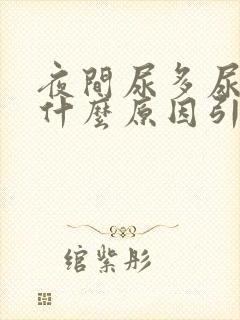 夜間尿多尿
什麼原因引
綰紫彤